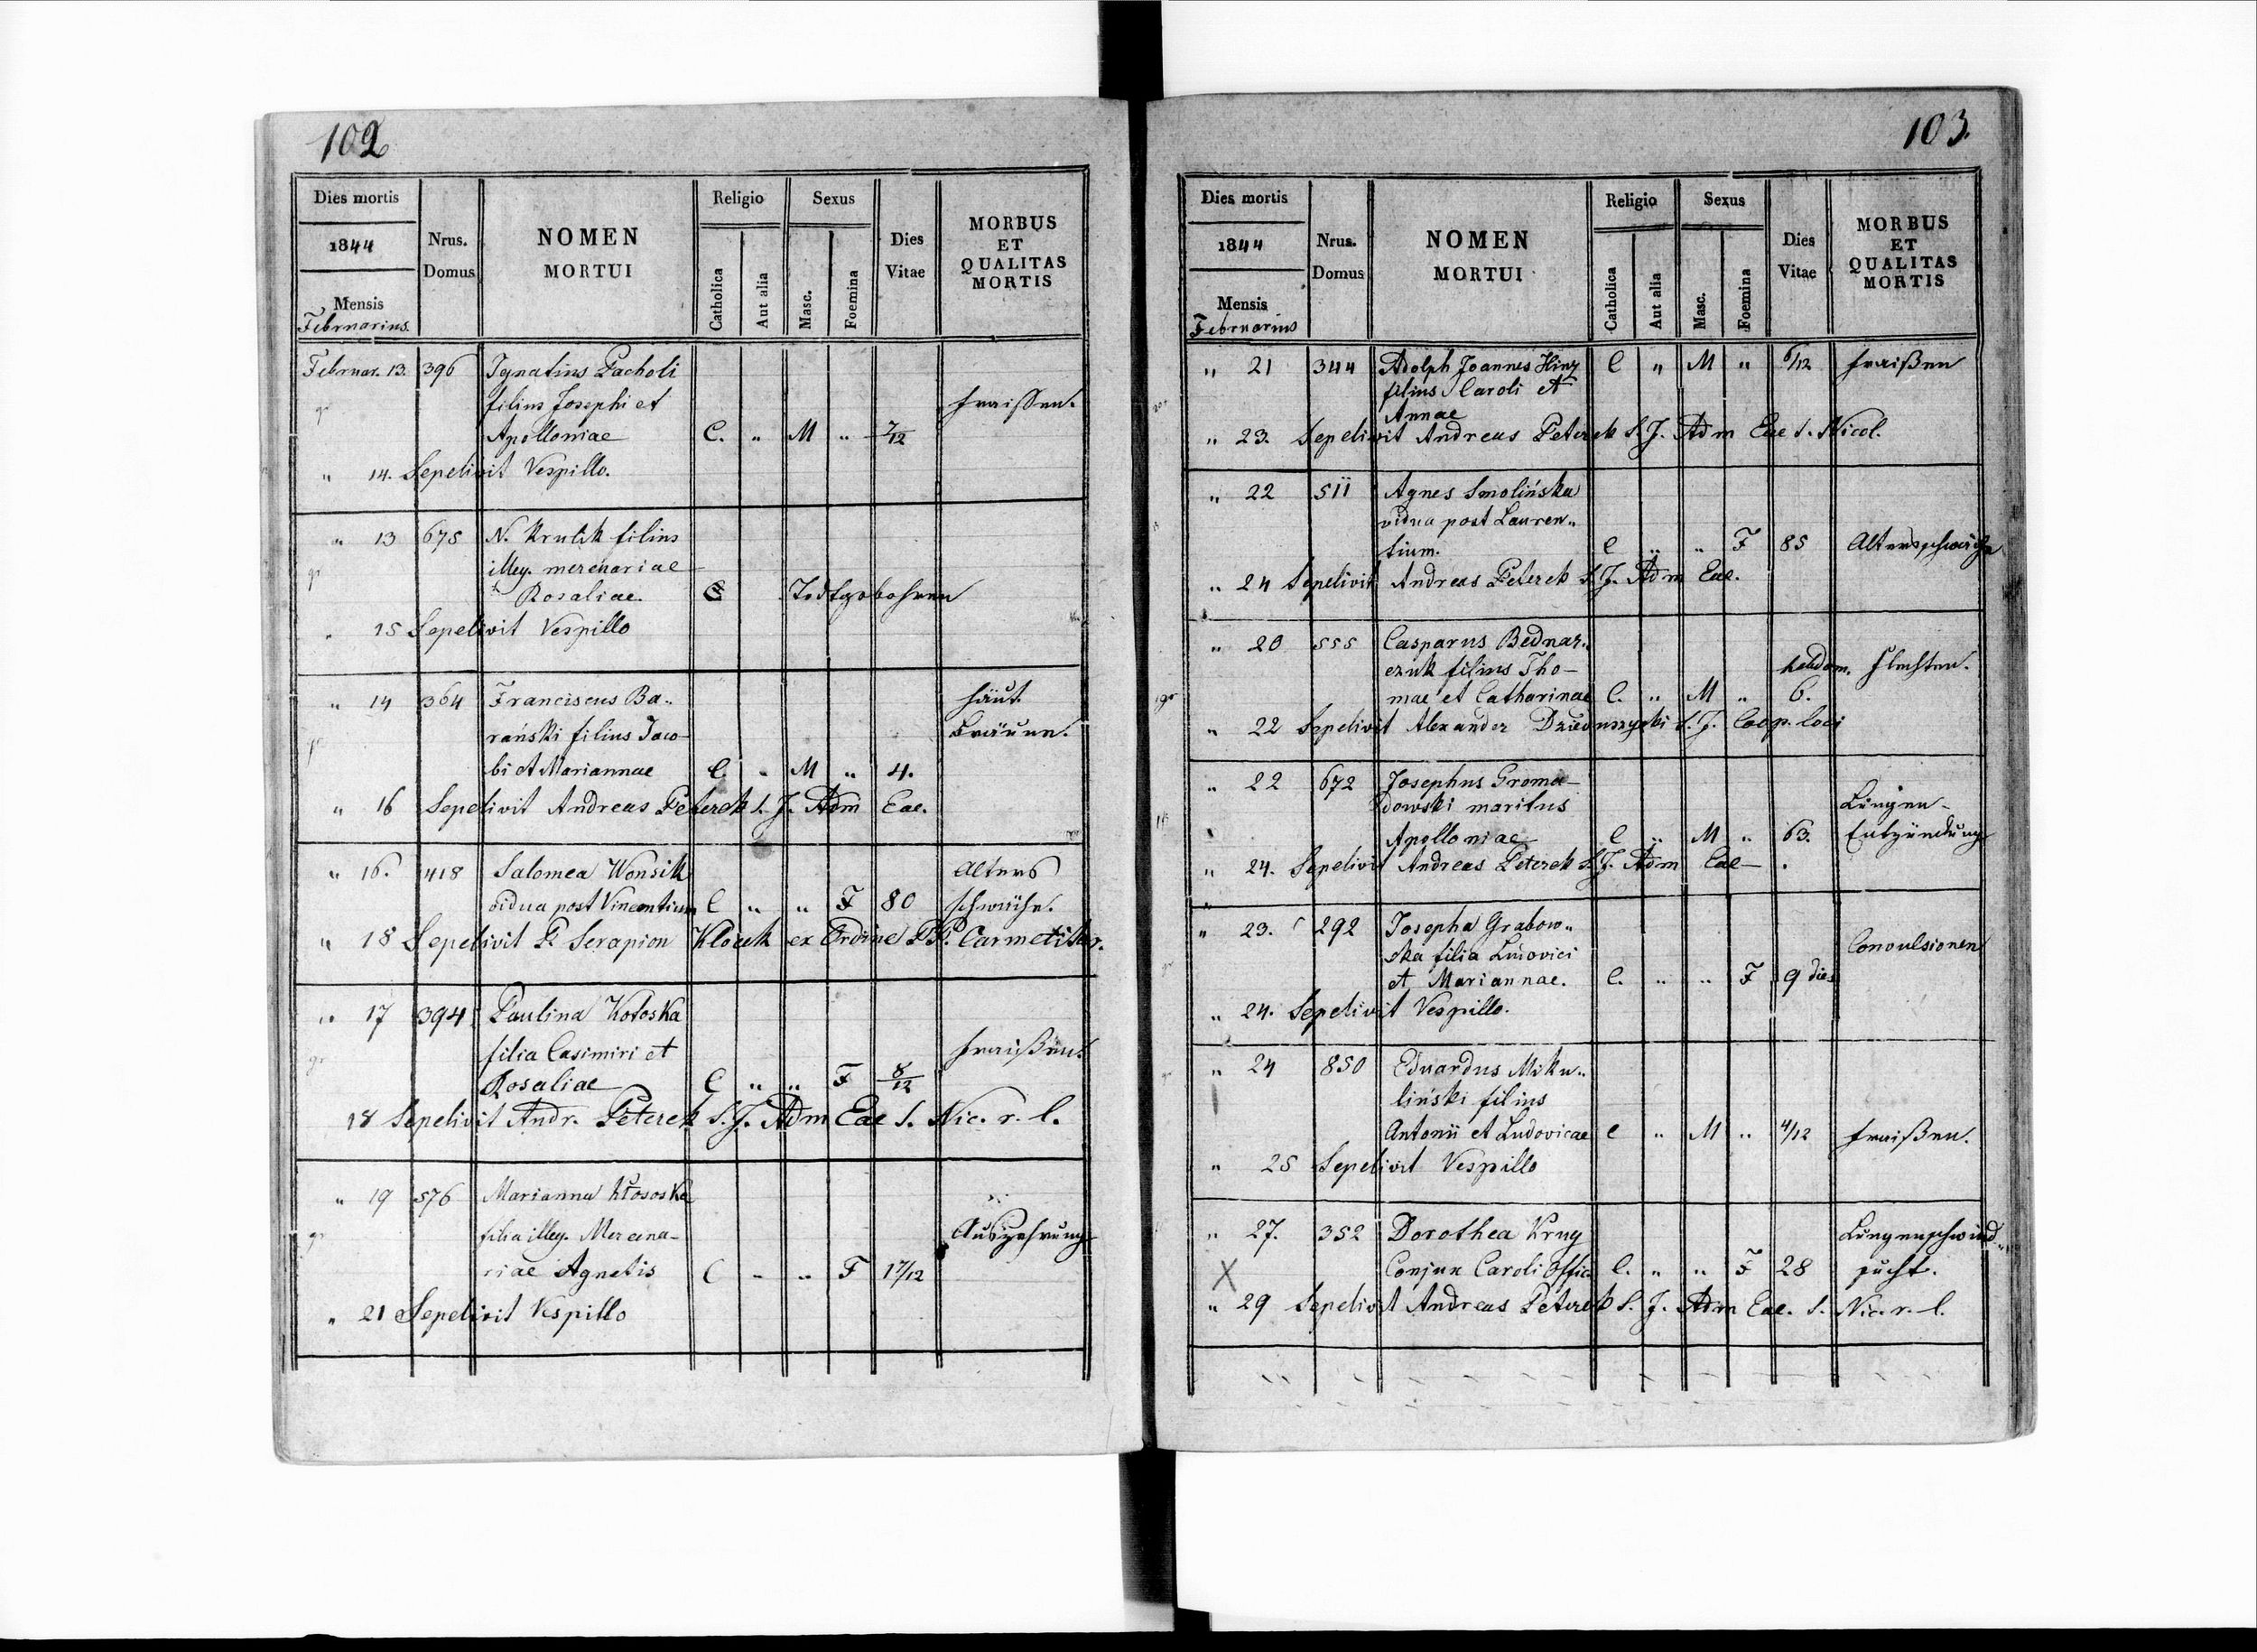 102
Dies mortis
1844
Mensis
Februarius.
Nrus.
Domus
NOMEN
MORTUI
Religio
Catholica
Aut alia
Sexus
Masc.
Foemina
Dies
Vitae
MORBUS
ET
QUALITAS
MORTIS
Februar. 13. 396 Ignatius Pacholi
filius Josephi et fraissen.
Apolloniae C. " M " 7/12
" 14. Sepelivit Vespillo.
" 13 675 N. Krulik filius
illeg. mercenariae
Rosaliae. C Todtgebohren
" 15 Sepelivit Vespillo
" 14 364 Franciscus Ba„ häut.
rański filius Jaco- Bräune.
bi et Mariannae C. " M " 4.
" 16 Sepelivit Andreas Peterek S. J. Adm Eae.
" 16. 418 Salomea Wonsik Alters
vidua post Vincentium C " " F 80 schwäche.
" 18 Sepelivit P. Serapion Klocek ex Ordine PP. Carmelitar.
" 17 394 Paulina Kotoska
filia Casimiri et fraißen.
Rosaliae C " " F 8/12
18 Sepelivit Andr. Peterek S. J. Adm Eae S. Nic. r. l.
" 19 576 Marianna Kłososka
filia illeg. Mercena- Auszehrung
riae Agnetis C " " F 17/12
" 21 Sepelivit Vespillo
103.
Dies mortis
1844
Mensis
Februarius
Nrus.
Domus
NOMEN
MORTUI
Religio
Catholica
Aut alia
Sexus
Masc.
Foemina
Dies
Vitae
MORBUS
ET
QUALITAS
MORTIS
" 21 344 Adolph Joannes Hinz C " M " 6/12 fraißen
filius Caroli et
Annae
" 23. Sepelivit Andreas Peterek S. J. Adm Eae S. Nicol.
" 22 511 Agnes Smolińska
vidua post Lauren„
tium. C " " F 85 Altersschwäche
" 24 Sepelivit Andreas Peterek S. J. Adm Eae.
" 20 555 Casparus Bednar„
czuk filius Tho- hebdom. Flechten.
mae et Catharinae C. " M " 6.
" 22 Sepelivit Alexander Dzieduszycki S. J. Coop. loci
" 22 672 Josephus Groma-
dowski maritus Lungen-
Apolloniae C " M " 63. Entzündung
" 24. Sepelivit Andreas Peterek S. J. Adm Eae
" 23. 292 Josepha Grabow„
ska filia Ludovici Convulsionen
et Mariannae. C. " " F 9 dies
" 24. Sepelivit Vespillo.
" 24 850 Eduardus Miku„
liński filius
Antonii et Ludovicae C " M " 4/12 fraißen.
" 25 Sepelivit Vespillo
" 27. 352 Dorothea Krug Lungenschwind„
X Conjux Caroli Offic. C. " " F 28 sucht.
" 29 Sepelivit Andreas Peterek S. J. Adm Eae. S. Nic. r. l.